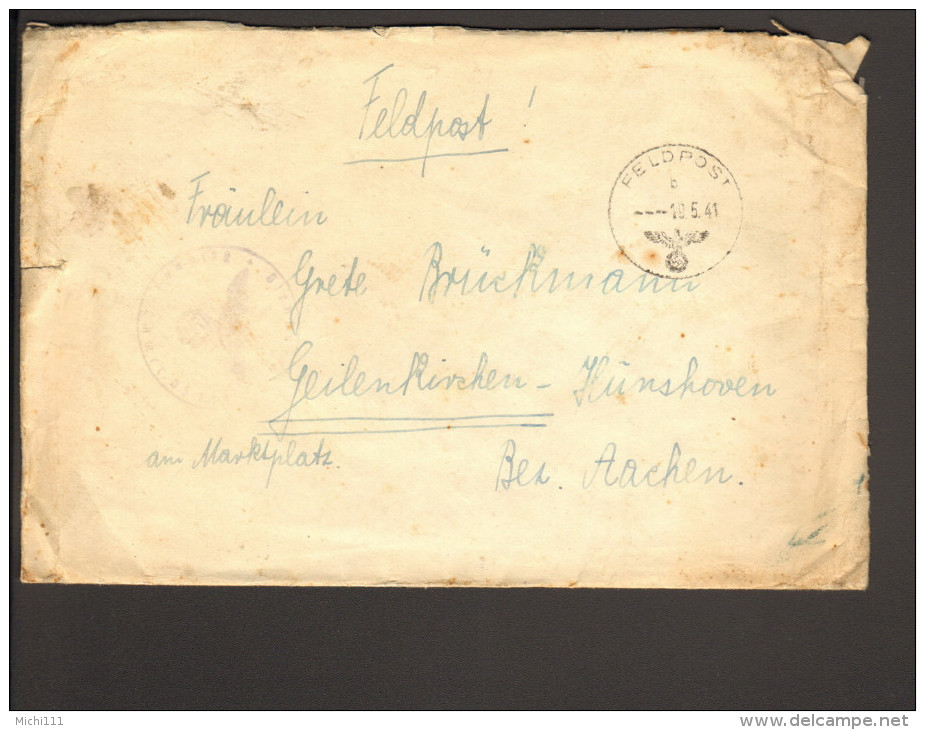 Feldpost!
FELDPOST
b
---19.5.41
Fräulein
Grete Brückmann
Geilenkirchen - Hünshoven
am Marktplatz.
Bez. Aachen.
Michi111
http://www.delcampe.net